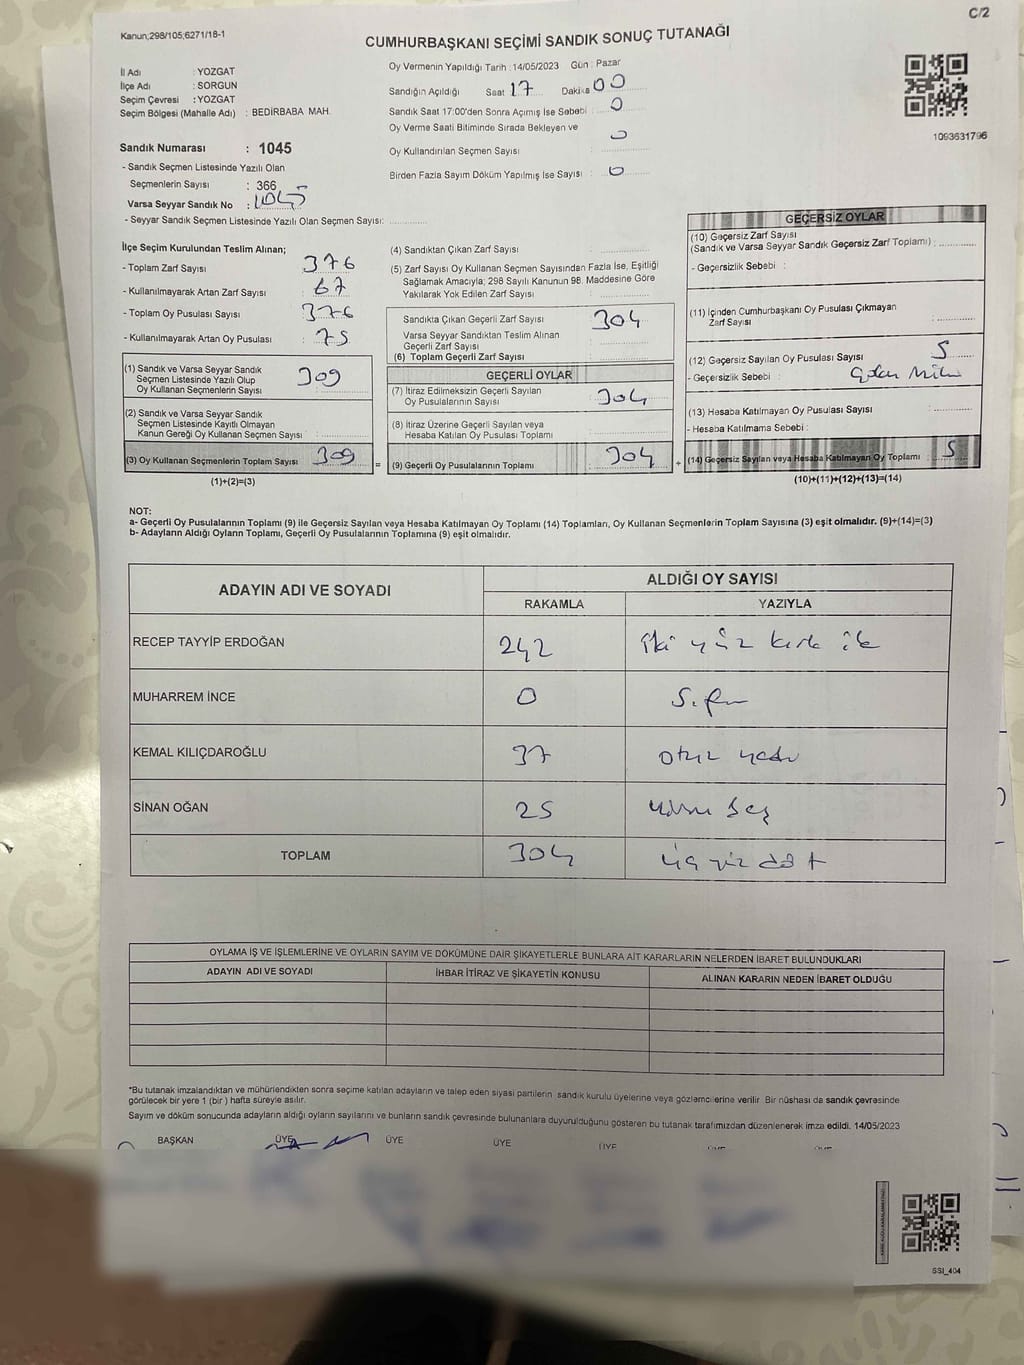 C/2
Kanun;298/105;6271/18-1
CUMHURBAŞKANI SEÇİMİ SANDIK SONUÇ TUTANAĞI
İl Adı : YOZGAT
İlçe Adı : SORGUN
Seçim Çevresi : YOZGAT
Seçim Bölgesi (Mahalle Adı) : BEDİRBABA MAH.
Oy Vermenin Yapıldığı Tarih :14/05/2023 Gün : Pazar
Sandığın Açıldığı Saat 17 Dakika 00
Sandık Saat 17:00'den Sonra Açımış İse Sebebi : 0
Oy Verme Saati Bitiminde Sırada Bekleyen ve
Oy Kullandırılan Seçmen Sayısı : 0
Birden Fazla Sayım Döküm Yapılmış İse Sayısı : 0
1093631796
Sandık Numarası : 1045
- Sandık Seçmen Listesinde Yazılı Olan
Seçmenlerin Sayısı : 366
Varsa Seyyar Sandık No : 1045
- Seyyar Sandık Seçmen Listesinde Yazılı Olan Seçmen Sayısı:
İlçe Seçim Kurulundan Teslim Alınan;
- Toplam Zarf Sayısı : 376
- Kullanılmayarak Artan Zarf Sayısı : 67
- Toplam Oy Pusulası Sayısı : 376
- Kullanılmayarak Artan Oy Pusulası : 75
(1) Sandık ve Varsa Seyyar Sandık
Seçmen Listesinde Yazılı Olup
Oy Kullanan Seçmenlerin Sayısı : 309
(2) Sandık ve Varsa Seyyar Sandık
Seçmen Listesinde Kayıtlı Olmayan
Kanun Gereği Oy Kullanan Seçmen Sayısı :
(3) Oy Kullanan Seçmenlerin Toplam Sayısı : 309
(1)+(2)=(3)
(4) Sandıktan Çıkan Zarf Sayısı :
(5) Zarf Sayısı Oy Kullanan Seçmen Sayısından Fazla İse, Eşitliği
Sağlamak Amacıyla; 298 Sayılı Kanunun 98. Maddesine Göre
Yakılarak Yok Edilen Zarf Sayısı :
Sandıkta Çıkan Geçerli Zarf Sayısı : 304
Varsa Seyyar Sandıktan Teslim Alınan
Geçerli Zarf Sayısı
(6) Toplam Geçerli Zarf Sayısı :
GEÇERLİ OYLAR
(7) İtiraz Edilmeksizin Geçerli Sayılan
Oy Pusulalarının Sayısı : 304
(8) İtiraz Üzerine Geçerli Sayılan veya
Hesaba Katılan Oy Pusulası Toplamı :
= (9) Geçerli Oy Pusulalarının Toplamı : 304 +
GEÇERSİZ OYLAR
(10) Geçersiz Zarf Sayısı
(Sandık ve Varsa Seyyar Sandık Geçersiz Zarf Toplamı) :
- Geçersizlik Sebebi :
(11) İçinden Cumhurbaşkanı Oy Pusulası Çıkmayan
Zarf Sayısı :
(12) Geçersiz Sayılan Oy Pusulası Sayısı : 5
- Geçersizlik Sebebi :
(13) Hesaba Katılmayan Oy Pusulası Sayısı :
- Hesaba Katılmama Sebebi :
(14) Geçersiz Sayılan veya Hesaba Katılmayan Oy Toplamı : 5
(10)+(11)+(12)+(13)=(14)
NOT:
a- Geçerli Oy Pusulalarının Toplamı (9) ile Geçersiz Sayılan veya Hesaba Katılmayan Oy Toplamı (14) Toplamları, Oy Kullanan Seçmenlerin Toplam Sayısına (3) eşit olmalıdır. (9)+(14)=(3)
b- Adayların Aldığı Oyların Toplamı, Geçerli Oy Pusulalarının Toplamına (9) eşit olmalıdır.
ADAYIN ADI VE SOYADI ALDIĞI OY SAYISI
RAKAMLA YAZIYLA
RECEP TAYYİP ERDOĞAN 242 iki yüz kırk iki
MUHARREM İNCE 0 Sıfır
KEMAL KILIÇDAROĞLU 37 otuz yedi
SİNAN OĞAN 25 yirmi beş
TOPLAM 304 üç yüz dört
OYLAMA İŞ VE İŞLEMLERİNE VE OYLARIN SAYIM VE DÖKÜMÜNE DAİR ŞİKAYETLERLE BUNLARA AİT KARARLARIN NELERDEN İBARET BULUNDUKLARI
ADAYIN ADI VE SOYADI İHBAR İTİRAZ VE ŞİKAYETİN KONUSU ALINAN KARARIN NEDEN İBARET OLDUĞU
*Bu tutanak imzalandıktan ve mühürlendikten sonra seçime katılan adayların ve talep eden siyasi partilerin sandık kurulu üyelerine veya gözlemcilerine verilir. Bir nüshası da sandık çevresinde
görülecek bir yere 1 (bir) hafta süreyle asılır.
Sayım ve döküm sonucunda adayların aldığı oyların sayılarını ve bunların sandık çevresinde bulunanlara duyurulduğunu gösteren bu tutanak tarafımızdan düzenlenerek imza edildi. 14/05/2023
BAŞKAN ÜYE ÜYE ÜYE ÜYE
SSI_404